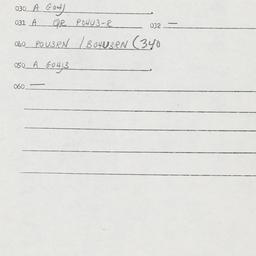 030 A GO4J
031 A QR PO4U3-R 032 —
040 POU3RN / BO4U3RN (340
050 A EO4J3
060 —